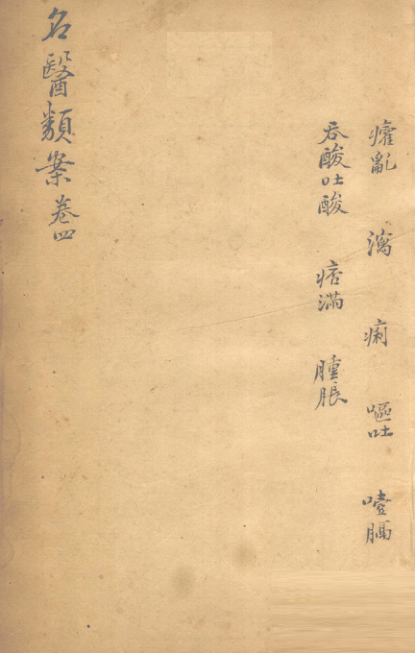 名醫類案 卷四
癨亂 瀉 痢 嘔吐 噎膈
吞酸吐酸 痞滿 腫脹